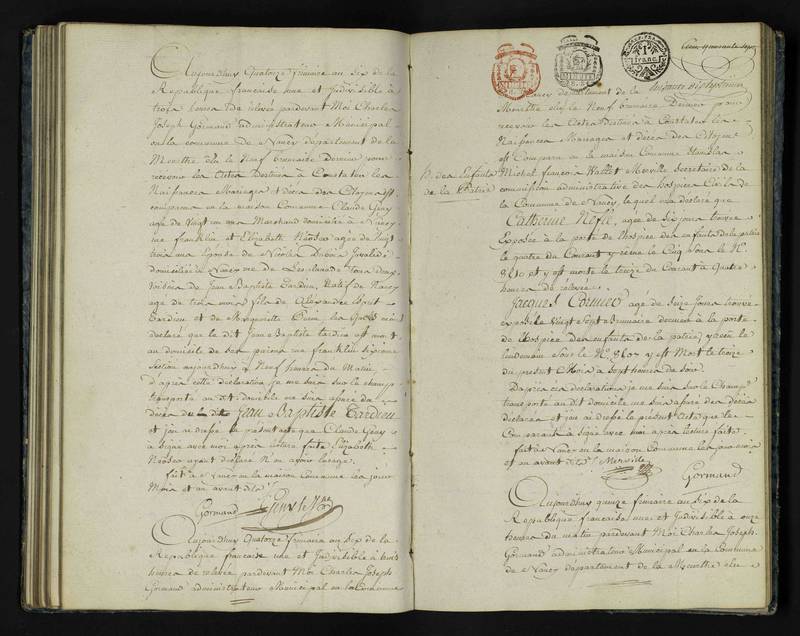 Aujourdhuy Quatorze frimaire an Six de la
Republique francaise une et Indivisible à
trois heures de relevée pardevant Moi Charles
Joseph Gormand administrateur Municipal
en la commune de Nancy département de la
Meurthe élu le Neuf brumaire dernier pour
recevoir les Actes Destinés à Constater les
Naissances Mariages et décès des Citoyens est
comparu en la maison Commune Claude Geny
agé de Vingt un ans Marchand domicilié à Nancy
rue franklin et Elizabeth agée de Vingt
trois ans Epouse de Nicolas Dubois Invalide
domiciliée à Nancy rue de Lesplanade Tous deux
voisins de Jean Baptiste Tardieu, Natif de Nancy
agé de trois mois fils de Alexandre Esprit
Tardieu et de Marguerite les Quels m'ont
déclaré que le dit Jean Baptiste tardieu est mort
au domicile de ses parens rue franklin sixieme
Section aujourdhuy à Neuf heures du Matin
d'après cette déclaration je me suis sur le champ
transporté au dit domicile me suis assuré du
décès du dit Jean Baptiste Tardieu
et j'en ai dressé le présent acte que Claude Geny
a signé avec moi après lecture faite Elizabeth
ayant déclaré N'en avoir l'usage.
fait à Nancy en la maison commune les jour
Mois et an avant dits
Gormand Geny
Aujourdhuy Quatorze frimaire an Six de la
Republique francaise une et Indivisible à trois
heures de relevée pardevant Moi Charles Joseph
Gormand administrateur Municipal en la Commune
1 franc
de Nancy département de la
Meurthe élu le Neuf brumaire Dernier pour
recevoir les Actes Destinés à Constater les
Naissances Mariages et décès des Citoyens
est Comparu en la maison Commune Stanislas
Michel françois Wallet Merville Secrétaire de la
commission administrative des hospices Civils de
la Commune de Nancy, le quel m'a déclaré que
h. des Enfants
de la Patrie
Catherine Nefle, agée de six jours trouvée
Exposée à la porte de l'hospice des enfants de la patrie
le quatre du Courant y reçue le Cinq sous le N.
8610 et y est morte le treize du Courant à Quatre
heures de relevée.
Jacques Cormier agé de Seize Jours trouvé
exposé le Vingt Sept Brumaire dernier à la porte
de l'hospice des enfants de la patrie, y reçu le
lendemain sous le N. 8607 y est Mort le treize
du présent Mois à Sept heures du Soir.
D'après ces déclarations je me suis sur le Champ
transporté au dit domicile me suis assuré des décès
déclarés et j'en ai dressé le présent Acte que le
Comparant a signé avec moi après lecture faite.
fait à Nancy en la maison Commune les jour mois
et an avant dits. Merville
Gormand
Aujourdhuy quinze frimaire an Six de la
Republique francaise une et Indivisible à onze
heures du matin pardevant Moi Charles Joseph
Gormand administrateur Municipal en la Commune
de Nancy département de la Meurthe élu